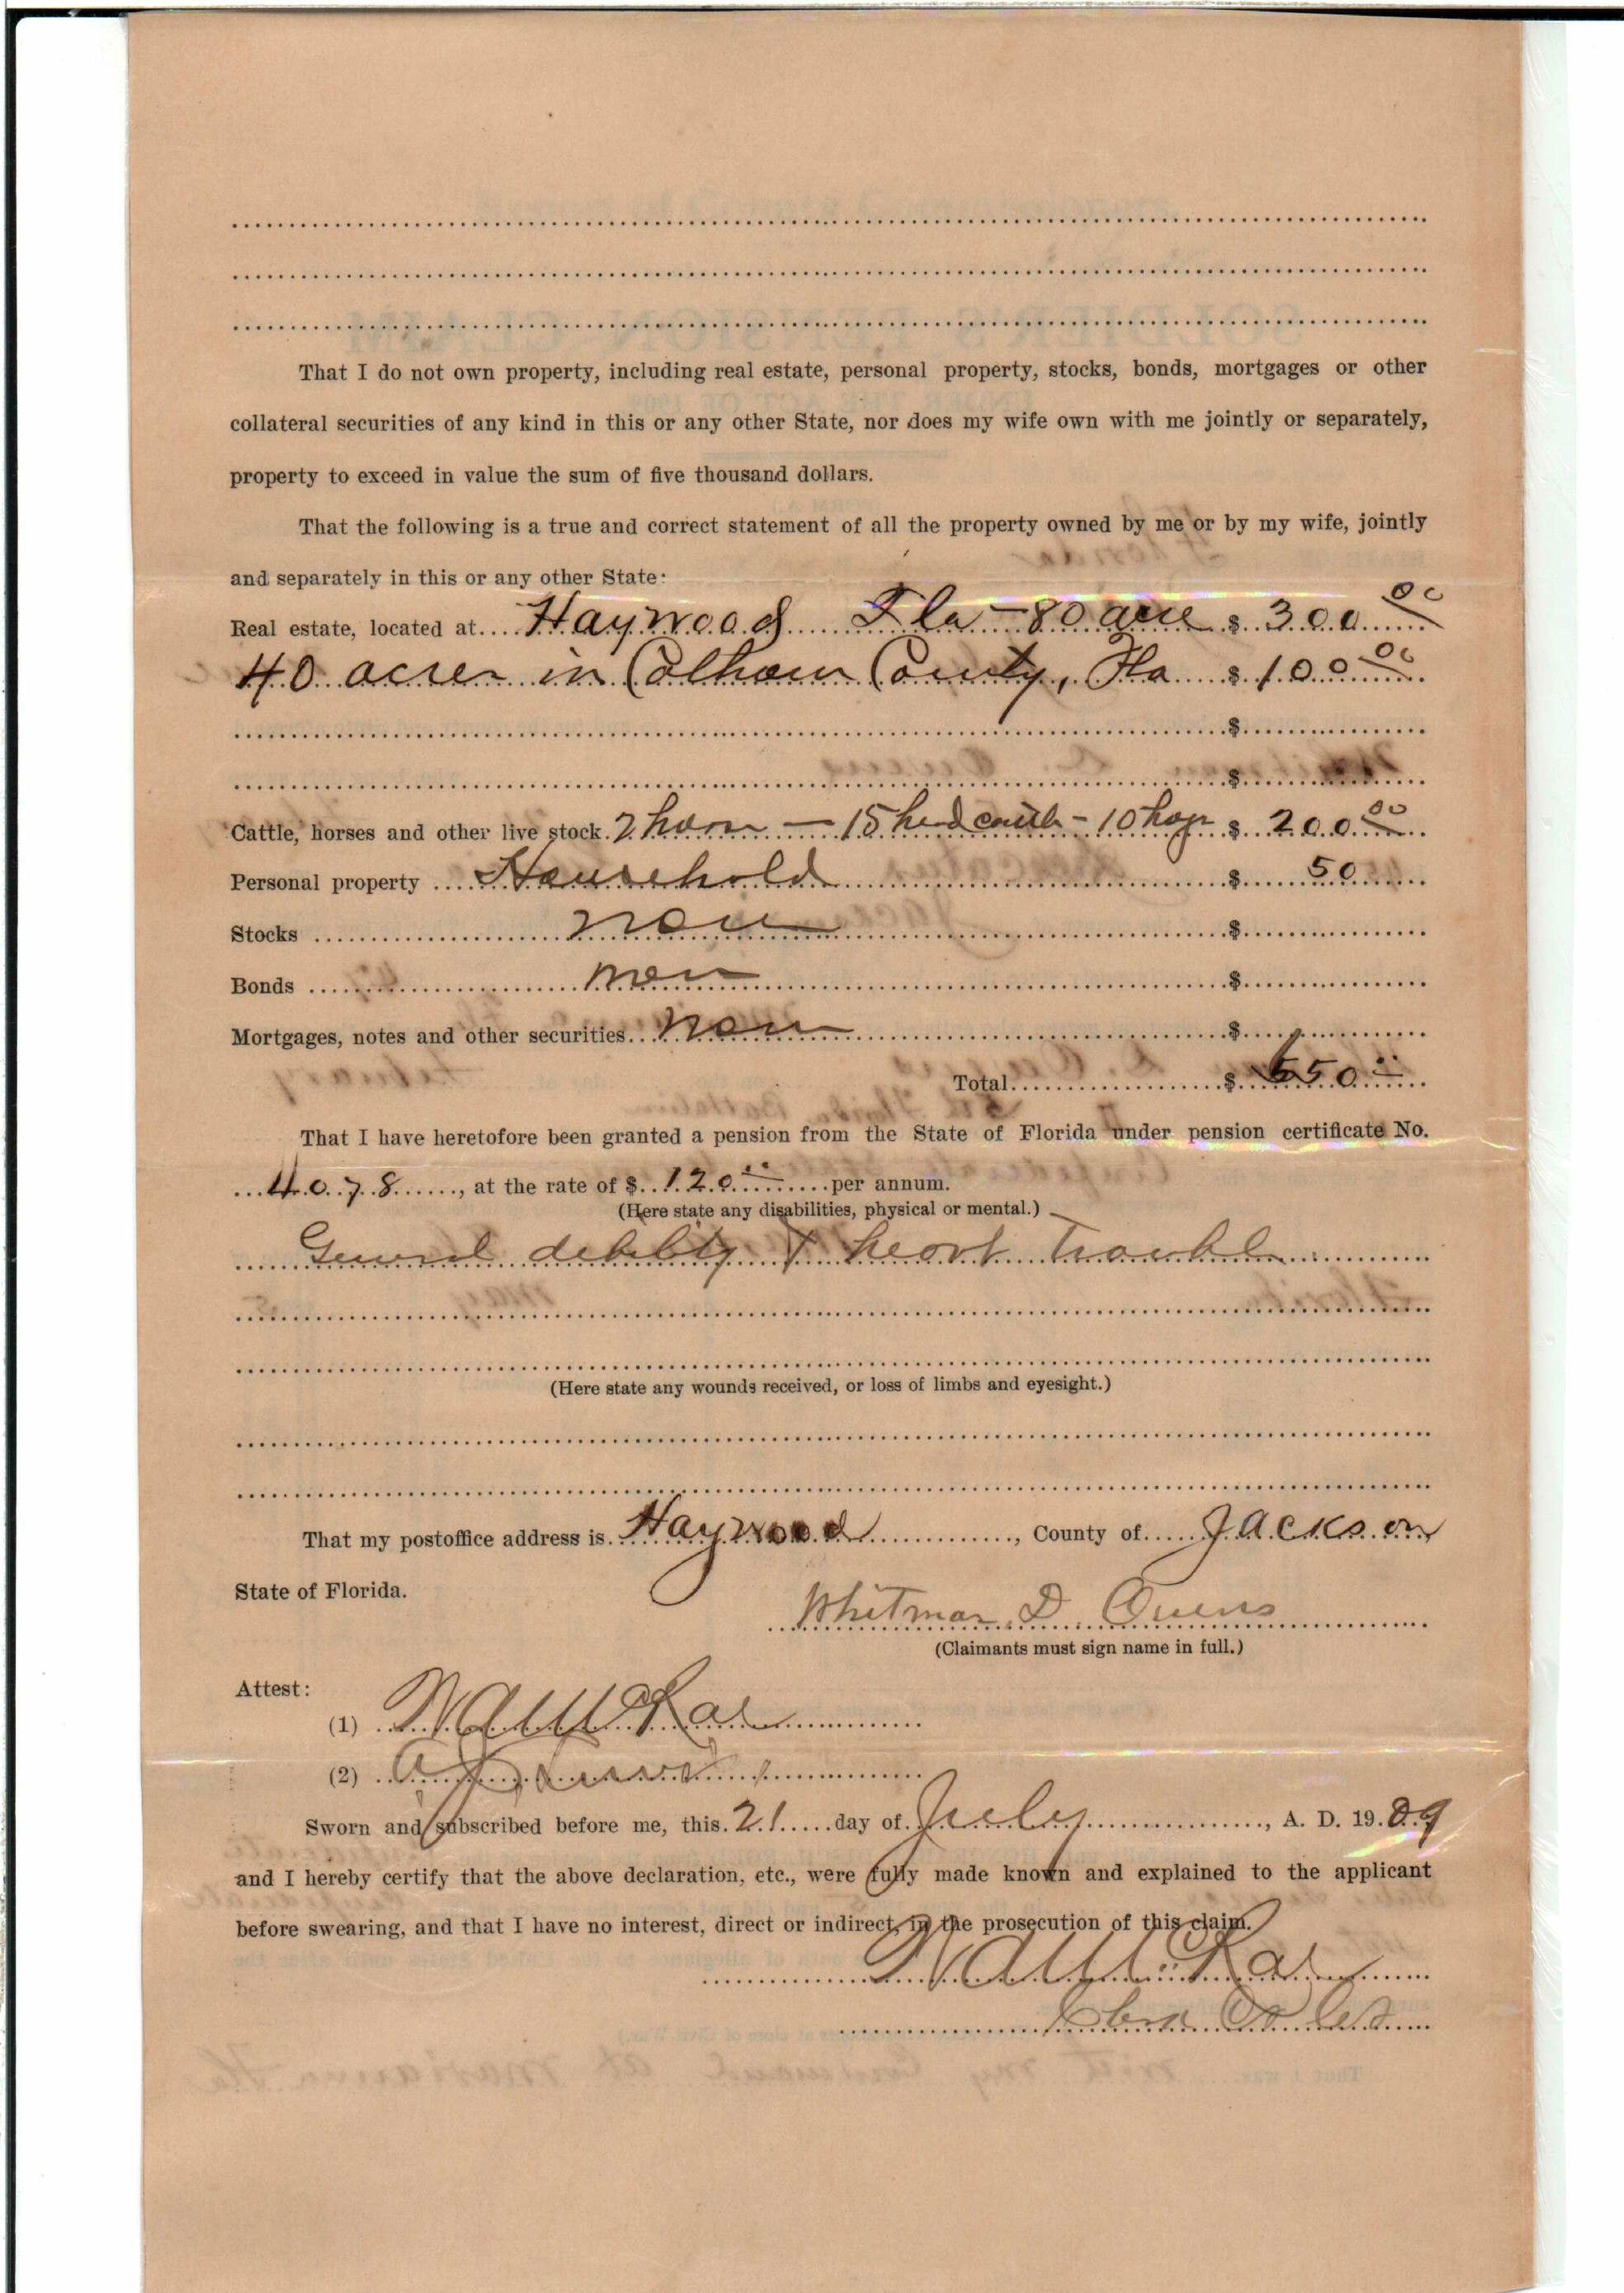 That I do not own property, including real estate, personal property, stocks, bonds, mortgages or other
collateral securities of any kind in this or any other State, nor does my wife own with me jointly or separately,
property to exceed in value the sum of five thousand dollars.
That the following is a true and correct statement of all the property owned by me or by my wife, jointly
and separately in this or any other State:
Real estate, located at Haywood Fla - 80 acre $ 300 00
40 acres in Calhoun County, Fla $ 100 00
$
$
Cattle, horses and other live stock. 2 hors - 15 hed cattle - 10 hogs $ 200 00
Personal property Household $ 50
Stocks non $
Bonds non $
Mortgages, notes and other securities non $
Total $ 650
That I have heretofore been granted a pension from the State of Florida under pension certificate No.
4078, at the rate of $ 120 per annum.
(Here state any disabilities, physical or mental.)
General debility & heart Trouble
(Here state any wounds received, or loss of limbs and eyesight.)
That my postoffice address is Haywood, County of Jackson
State of Florida.
Whitman D. Owens
(Claimants must sign name in full.)
Attest:
(1) W A McRae
(2)
Sworn and subscribed before me, this 21 day of July, A. D. 1909
and I hereby certify that the above declaration, etc., were fully made known and explained to the applicant
before swearing, and that I have no interest, direct or indirect, in the prosecution of this claim.
W A McRae